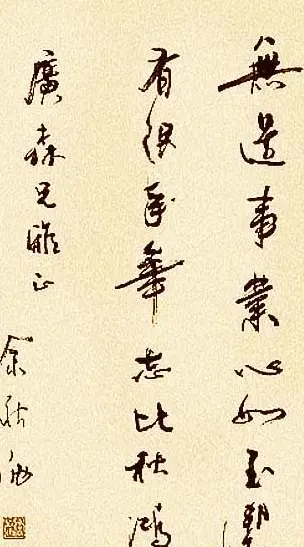 無邊事業心如玉
有限年華志比秋鴻
廣森兄雅正
余秋雨